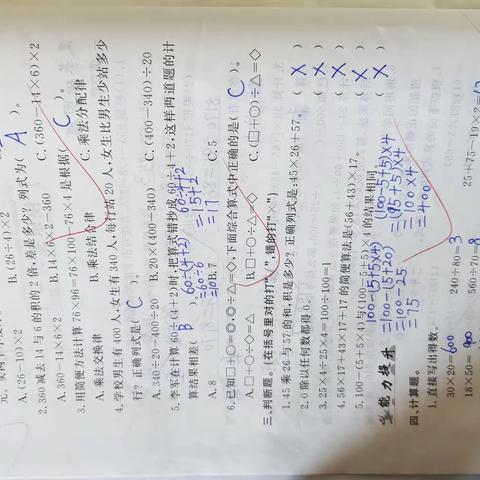 A. (26-10)×2
B. (26-4)×2
2. 360减去14与6的积的2倍,差是多少? 列式为( A )。
A. 360-14×6×2
B. 14×6×2-360
C. (360-14×6)×2
3. 用简便方法计算76×96=76×100-76×4是根据( C )。
A. 乘法交换律
B. 乘法结合律
C. 乘法分配律
4. 学校男生有400人,女生有340人,每行站20人,女生比男生少站多少
行? 正确列式是( C )。
A. 340÷20-400÷20
B. 20×(400-340)
C. (400-340)÷20
5. 李军在计算60÷(4+2)时,把算式错抄成60÷4+2,这样两道题的计
算结果相差( B )。
60÷(4+2)
=60÷6
=10
60÷4+2
=15+2
=17
A. 8
B. 7
C. 5
6. 已知□+○=◎,◎÷△=◇,下面综合算式中正确的是( C )。
A. □+○÷△=◇
B. □+○÷△
C. (□+○)÷△=◇
三、判断题。(在括号里对的打“√”,错的打“×”)
1. 45乘26与57的和,积是多少? 正确列式是:45×26+57。 ( X )
2. 0除以任何数都得0。 ( X )
3. 25×4÷25×4=100÷100=1 ( X )
4. 56×17-43×17+17的简便算法是(56+43)×17。 ( X )
5. 100-(5+5×4)与(100-5+5)×4的结果相同。 ( X )
100-(5+5×4)
=100-(5+20)
=100-25
=75
(100-5+5)×4
=(95+5)×4
=100×4
=400
能力提升
四、计算题。
1. 直接写出得数。
30×20=600
240÷80=3
23+75-19×2=
18×50=900
560÷70=8